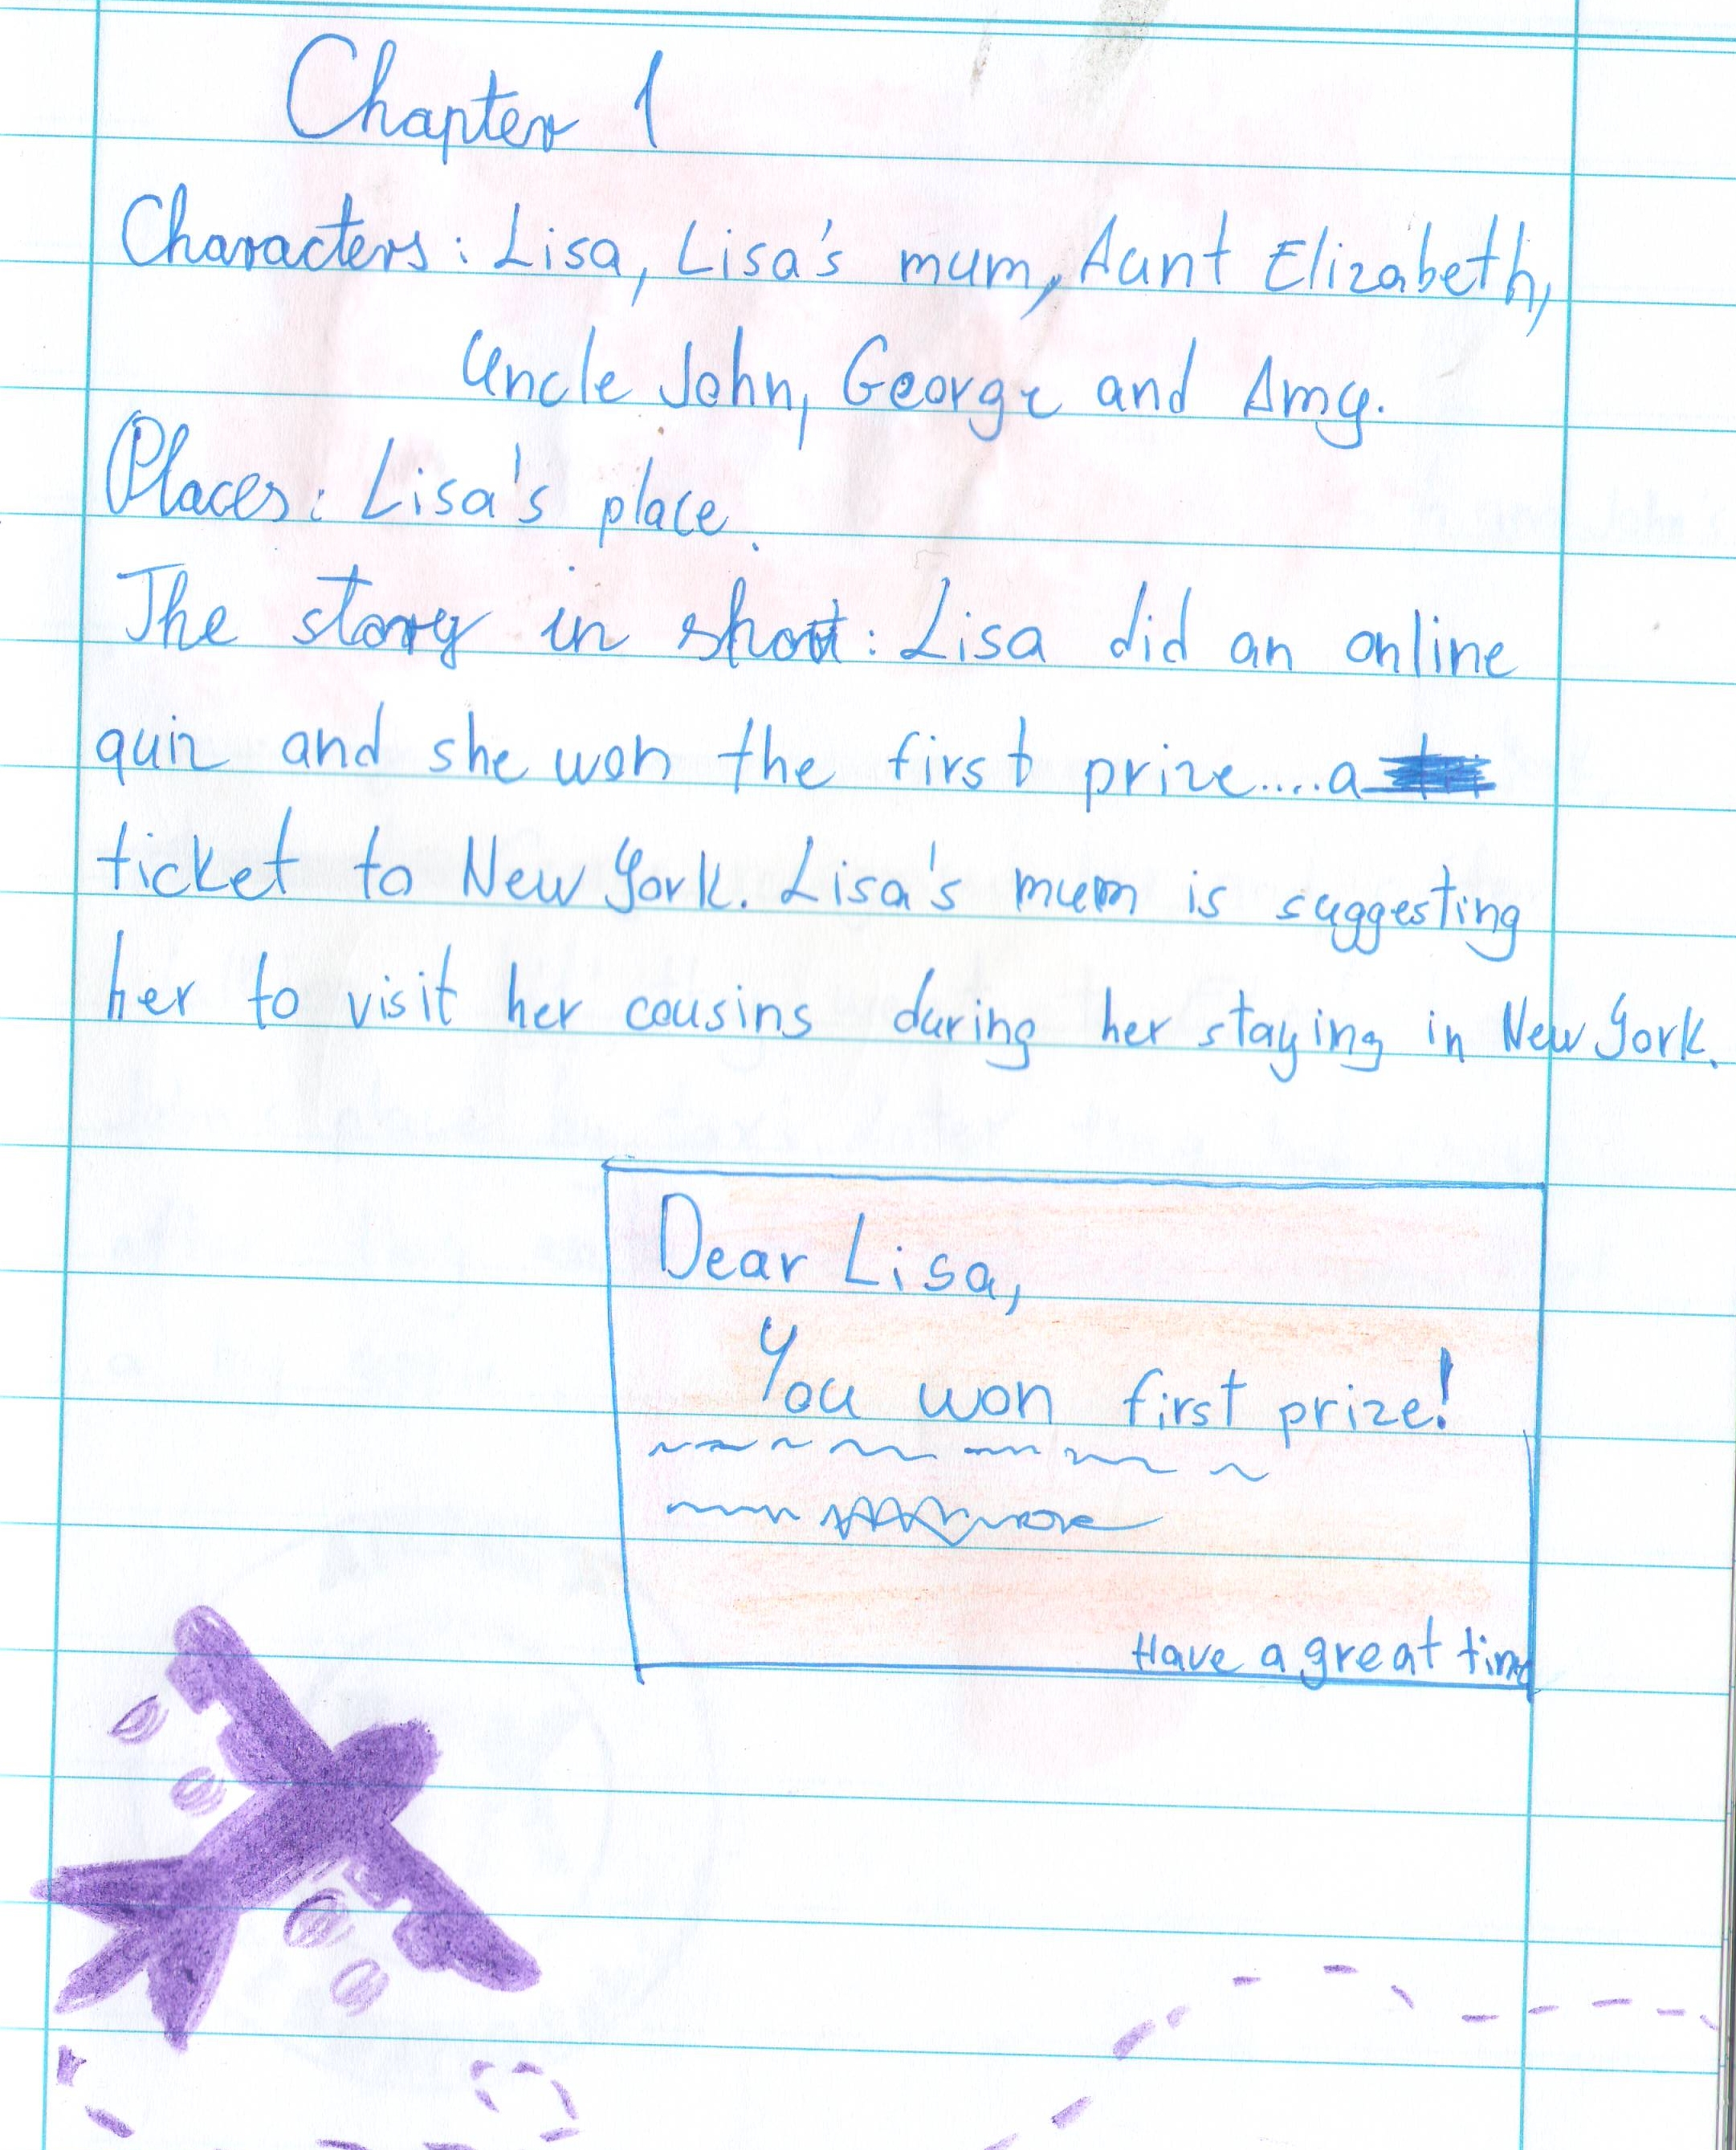 Chapter 1
Characters: Lisa, Lisa's mum, Aunt Elizabeth,
Uncle John, George and Amy.
Places: Lisa's place.
The story in short: Lisa did an online
quiz and she won the first prize....a
ticket to New York. Lisa's mum is suggesting
her to visit her cousins during her staying in New York.
Dear Lisa,
You won first prize!
Have a great time